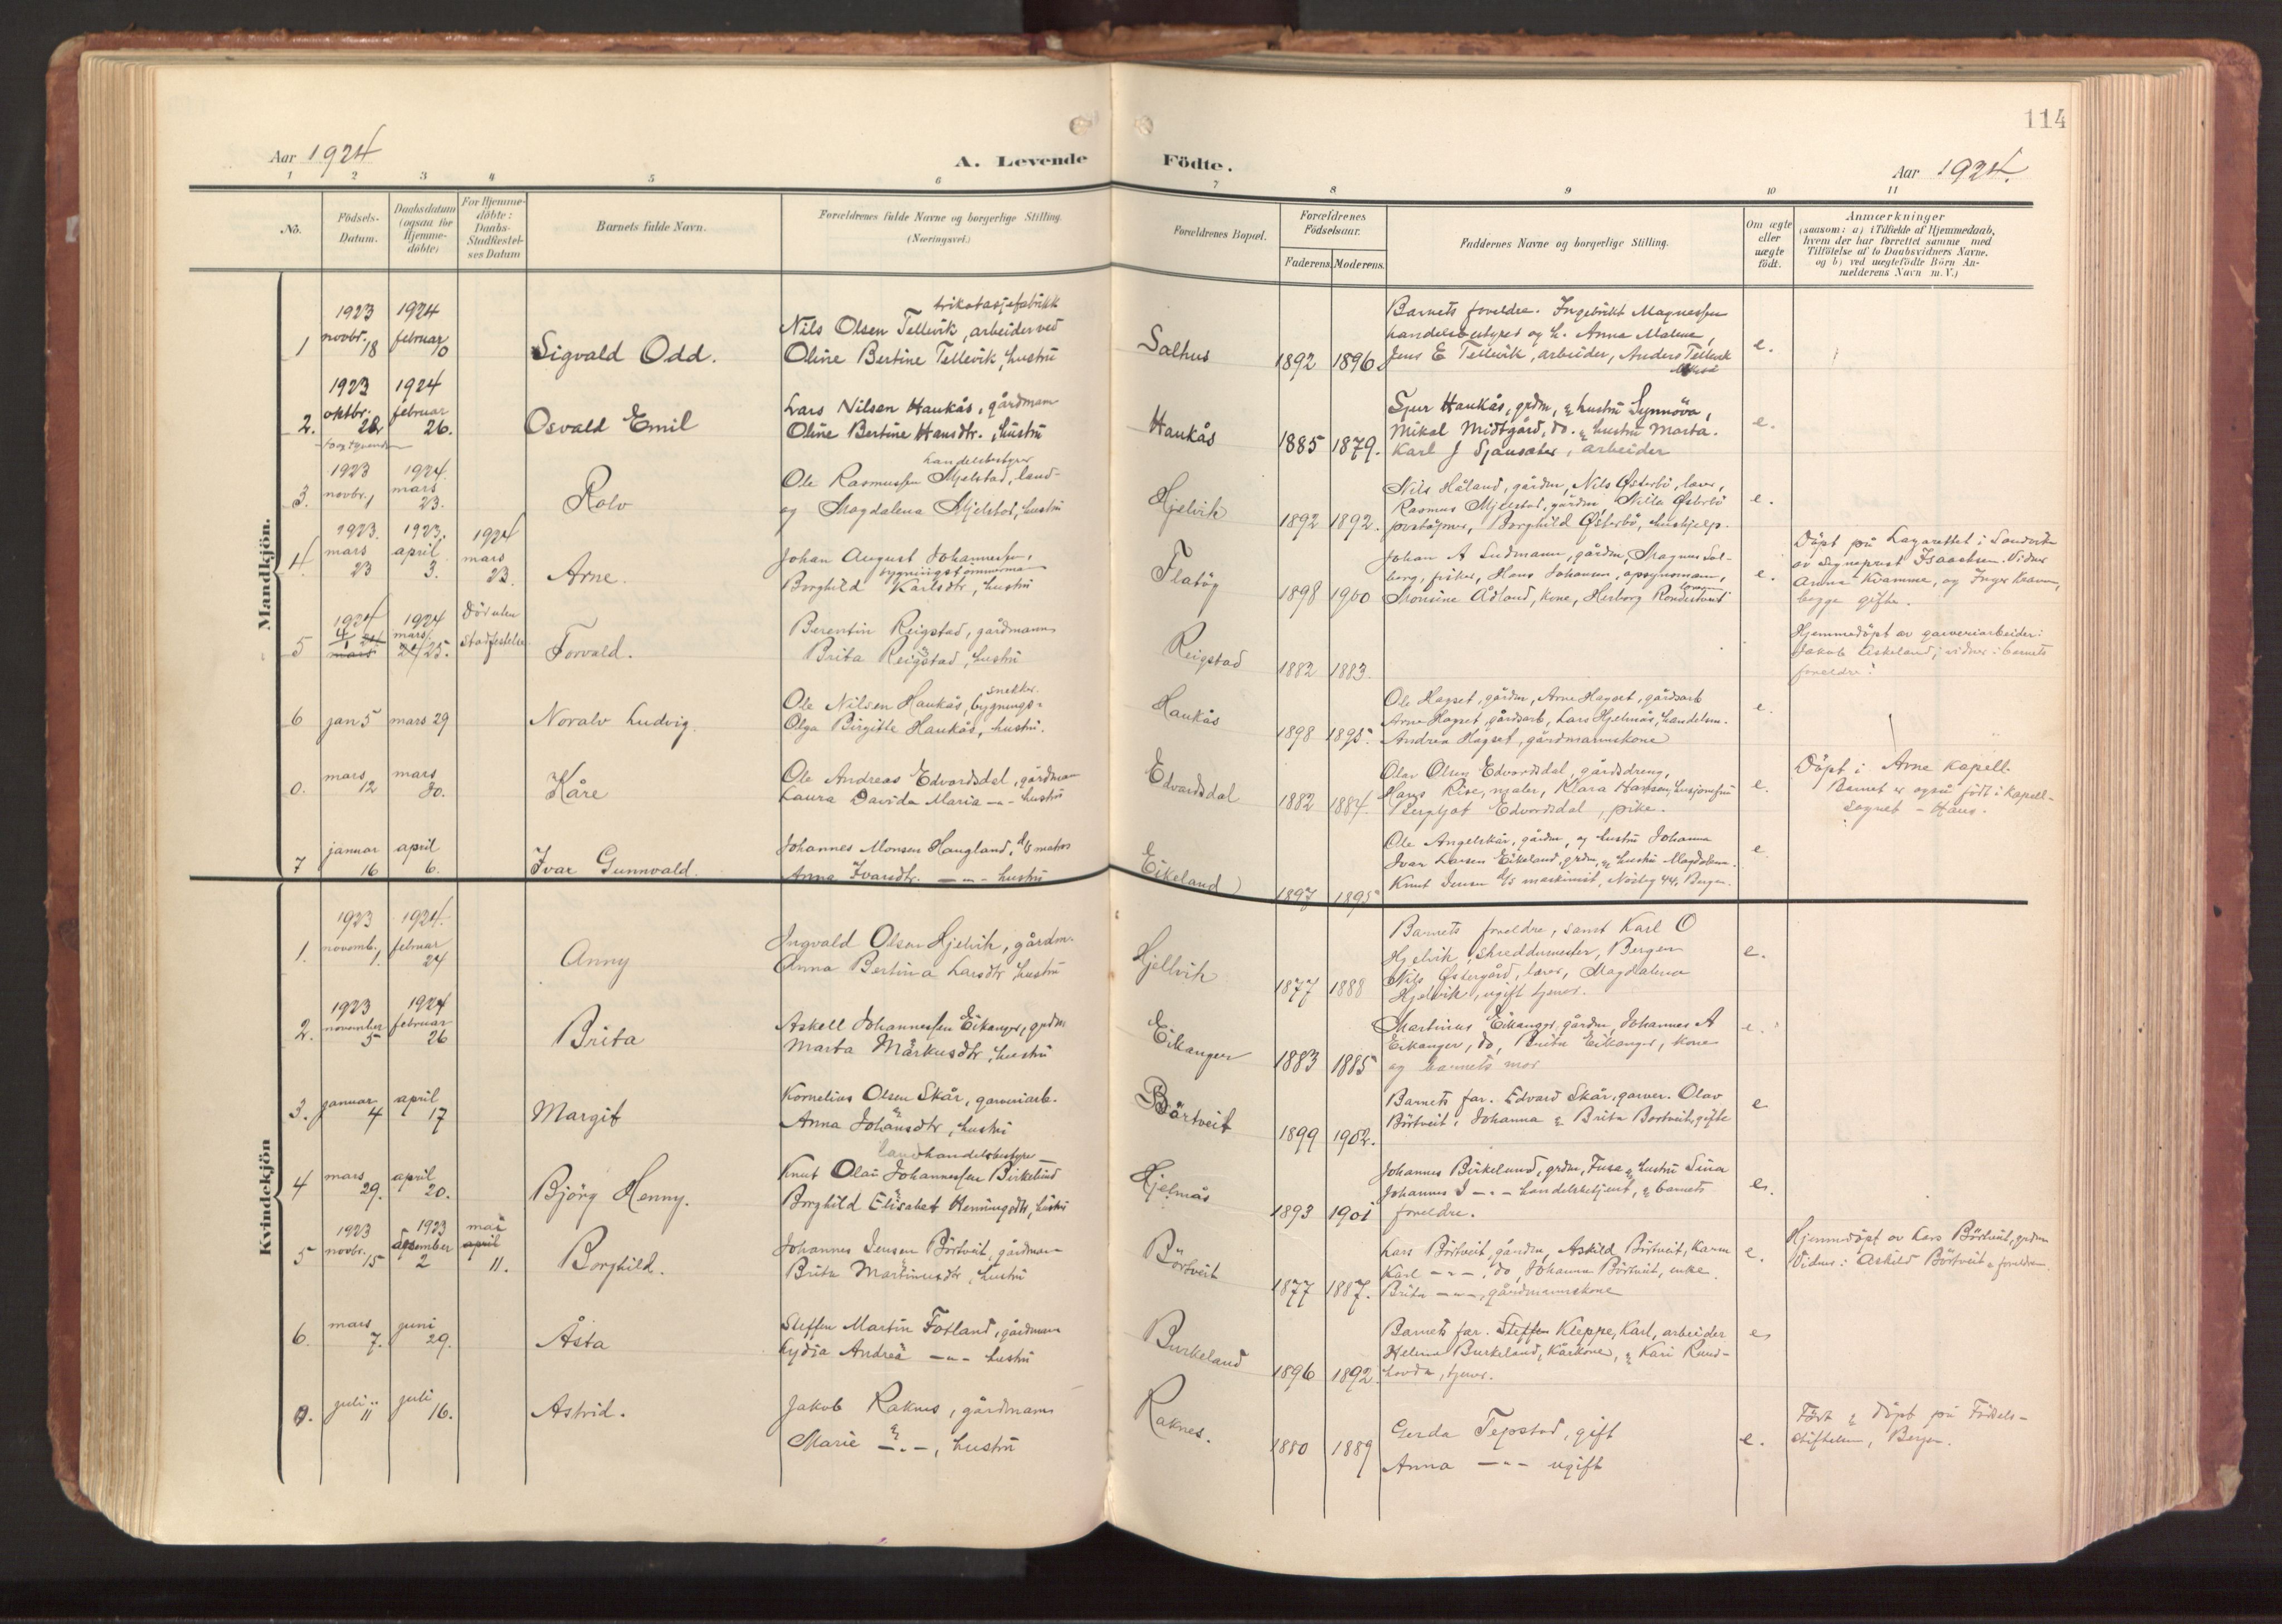 114
Aar 1924
A. Levende Födte.
Aar 1924.
1 2 3 4 5 6 7 8 9 10 11
No.
Födsels-Datum.
Daabsdatum (ogsaa for Hjemme-döbte)
For Hjemme-döbte: Daabs-Stadfæstel-ses Datum
Barnets fulde Navn.
Forældrenes fulde Navne og borgerlige Stilling. (Næringsvei.)
Forældrenes Bopæl.
Forældrenes Födselsaar.
Faderens. Moderens.
Faddernes Navne og borgerlige Stilling.
Om ægte eller uægte födt.
Anmærkninger
(saasom: a) i Tilfælde af Hjemmedaab,
hvem der har forrettet samme med
Tilföielse af to Daabsvidners Navne,
og b) ved uægtefödte Börn An-
melderens Navn m. V.)
Mandkjön.
1 1923 novbr. 18 1924 februar 10
Sigvald Odd.
trikotasjefabrikk
Nils Olsen Tellevik, arbeider ved
Oline Bertine Tellevik, hustru
Salhus
1892 1896.
Barnets foreldre. Ingebrikt Magnussen
handelsbestyrer og h. Anna Malene,
Jens E Tellevik, arbeider, Anders Tellevik
e.
2. 1923 oktbr. 28 1924 februar 26.
Osvald Emil
Lars Nilsen Haukås, gårdmann
Oline Bertine Hansdtr. hustru
Haukås
1885 1879.
Sjur Haukås, grdm, & hustru Synnöva,
Mikal Midtgård, do. & hustru Marta.
Karl J Sjausæter, arbeider
e.
3. 1923 novbr. 1 1924 mars 23.
Rolv
handelsbestyrer
Ole Rasmussen Mjelstad, land-
og Magdalena Mjelstad, hustru
Hjelvik
1892 1892.
Nils Håland, gårdm, Nils Østerbö, lærer,
Rasmus Mjelstad, gårdm, Nilla Østerbö
Borghild Østerbö, hushjelp.
e.
4. 1923. mars 23 1923. april 3. 1924 mars 23.
Arne.
Johan August Johannessen,
bygningstömmermann
Borghild Karlsdtr, hustru
Flatöy
1898 1900
Johan A Ludmann, gårdm, Magnus Sol-
berg, fisker, Hans Johansen, opsynsmann,
Monsine Ådland, kone, Herborg Rondestveit
e.
Döpt på Lazarettet i Sandvik
av sogneprest Isaachsen. Vidner
Anna Kvamme, og Inger Kvamme,
begge gifte.
5 1924 4/1 mars 1924 mars 24 25. Död uten stadfestelse
Torvald.
Berentin Reigstad, gårdmann
&
Brita Reigstad, hustru
Reigstad
1882 1883.
Hjemmedöpt av garveriarbeider:
Jakob Askeland; vidner: barnets
foreldre!
6 jan 5 mars 29
Noralv Ludvig.
snekker.
Ole Nilsen Haukås, bygnings-
Olga Birgitte Haukås, hustru.
Haukås
1898 1895.
Ole Hagset, gårdm, Arne Hagset, gårdsarb
Arne Hagset, gårdsarb, Lars Hjelmås, handelsm.
Andrea Hagset, gårdmannskone
e.
0. mars 12 mars 30.
Kåre
Ole Andreas Edvardsdal, gårdman
Laura Davida Maria -"- hustru
Edvardsdal
1882 1884.
Olav Olsen Edvardsdal, gårdsdreng,
Hans Rise, maler, Klara Hansen,
Bergljot Edvardsdal, pike.
e.
Döpt i Arne kapell.
Barnet er også födt i kapell-
sognet - Haus.
7 januar 16 april 6.
Ivar Gunnvald.
Johannes Monsen Haugland, d/s matros
Anna Ivarsdtr. -"- hustru
Eikeland
1897 1895
Ole Angelskår, gårdm, og hustru Johanna
Ivar Larsen Eikeland, grdm, & hustru Magdalena.
Knut Jensen d/s maskinist, Nösteg 44, Bergen.
e
Kvindekjön
1. 1923 novemb. 1. 1924. februar 24
Anny
Ingvald Olsen Hjelvik, gårdm.
Anna Bertina Larsdtr hustru
Hjellvik
1877 1888
Barnets foreldre, samt Karl O
Hjelvik, skreddermester, Bergen
Nils Østergård, lærer, Magdalena
Hjelvik, ugift tjener.
e.
2. 1923 november 5 1924 februar 26
Brita
Askell Johannessen Eikanger, grdm
Marta Markusdtr, hustru
Eikanger
1883 1885
Martinus Eikanger, gårdm, Johannes A
Eikanger, do, Brita Eikanger, kone
og barnets mor
e.
3. januar 4 april 17
Margit
Kornelius Olsen Skår, garveriarb.
&
Anna Johansdtr, hustru
Börtveit
1899 1902.
Barnets far. Edvard Skår, garver. Olav
Börtveit, Johanna & Brita Bortveit, gifte
e
4 mars 29. april 20.
Björg Henny.
landhandelsbestyrer
Knut Olai Johannessen Birkelund
&
Borghild Elisabet Henningsdtr, hustru
Hjelmås
1893 1901
Johannes Birkelund, grdm, Fusa & hustru Sina
Johannes J -"- handelsbetjent, & barnets
foreldre.
e.
5 1923 novbr. 15 1923 desember 2 mai april 11.
Borghild.
Johannes Jensen Börtveit, gårdmann
&
Brita Martinusdtr, hustru
Börtveit
1877 1887.
Lars Börtveit, gårdm, Askild Börtveit, Karm
Karl -"-, do, Johanna Börtveit, enke
Brita -"-, gårdmannskone
e.
Hjemmedöpt av Lars Börtveit, grdm
Vidner: Askild Börtveit & foreldre.
6. mars 7. juni 29.
Åsta
Steffen Martin Fotland, gårdmann
Lydia Andrea -"- hustru
Burkeland
1896 1892.
Barnets far. Steffen Kleppe, Karl, arbeider
Helena Burkeland, kårkone, & Kari Rund-
hovde, tjener.
e
0. juli 11 juli 16.
Astrid.
Jakob Raknes, gårdmann
&
Marie -"-, hustru
Raknes.
1880 1889
Gerda Tepstad, gift
Anna -"- ugift
e.
Födt & döpt på Födsels-
stiftelsen, Bergen.